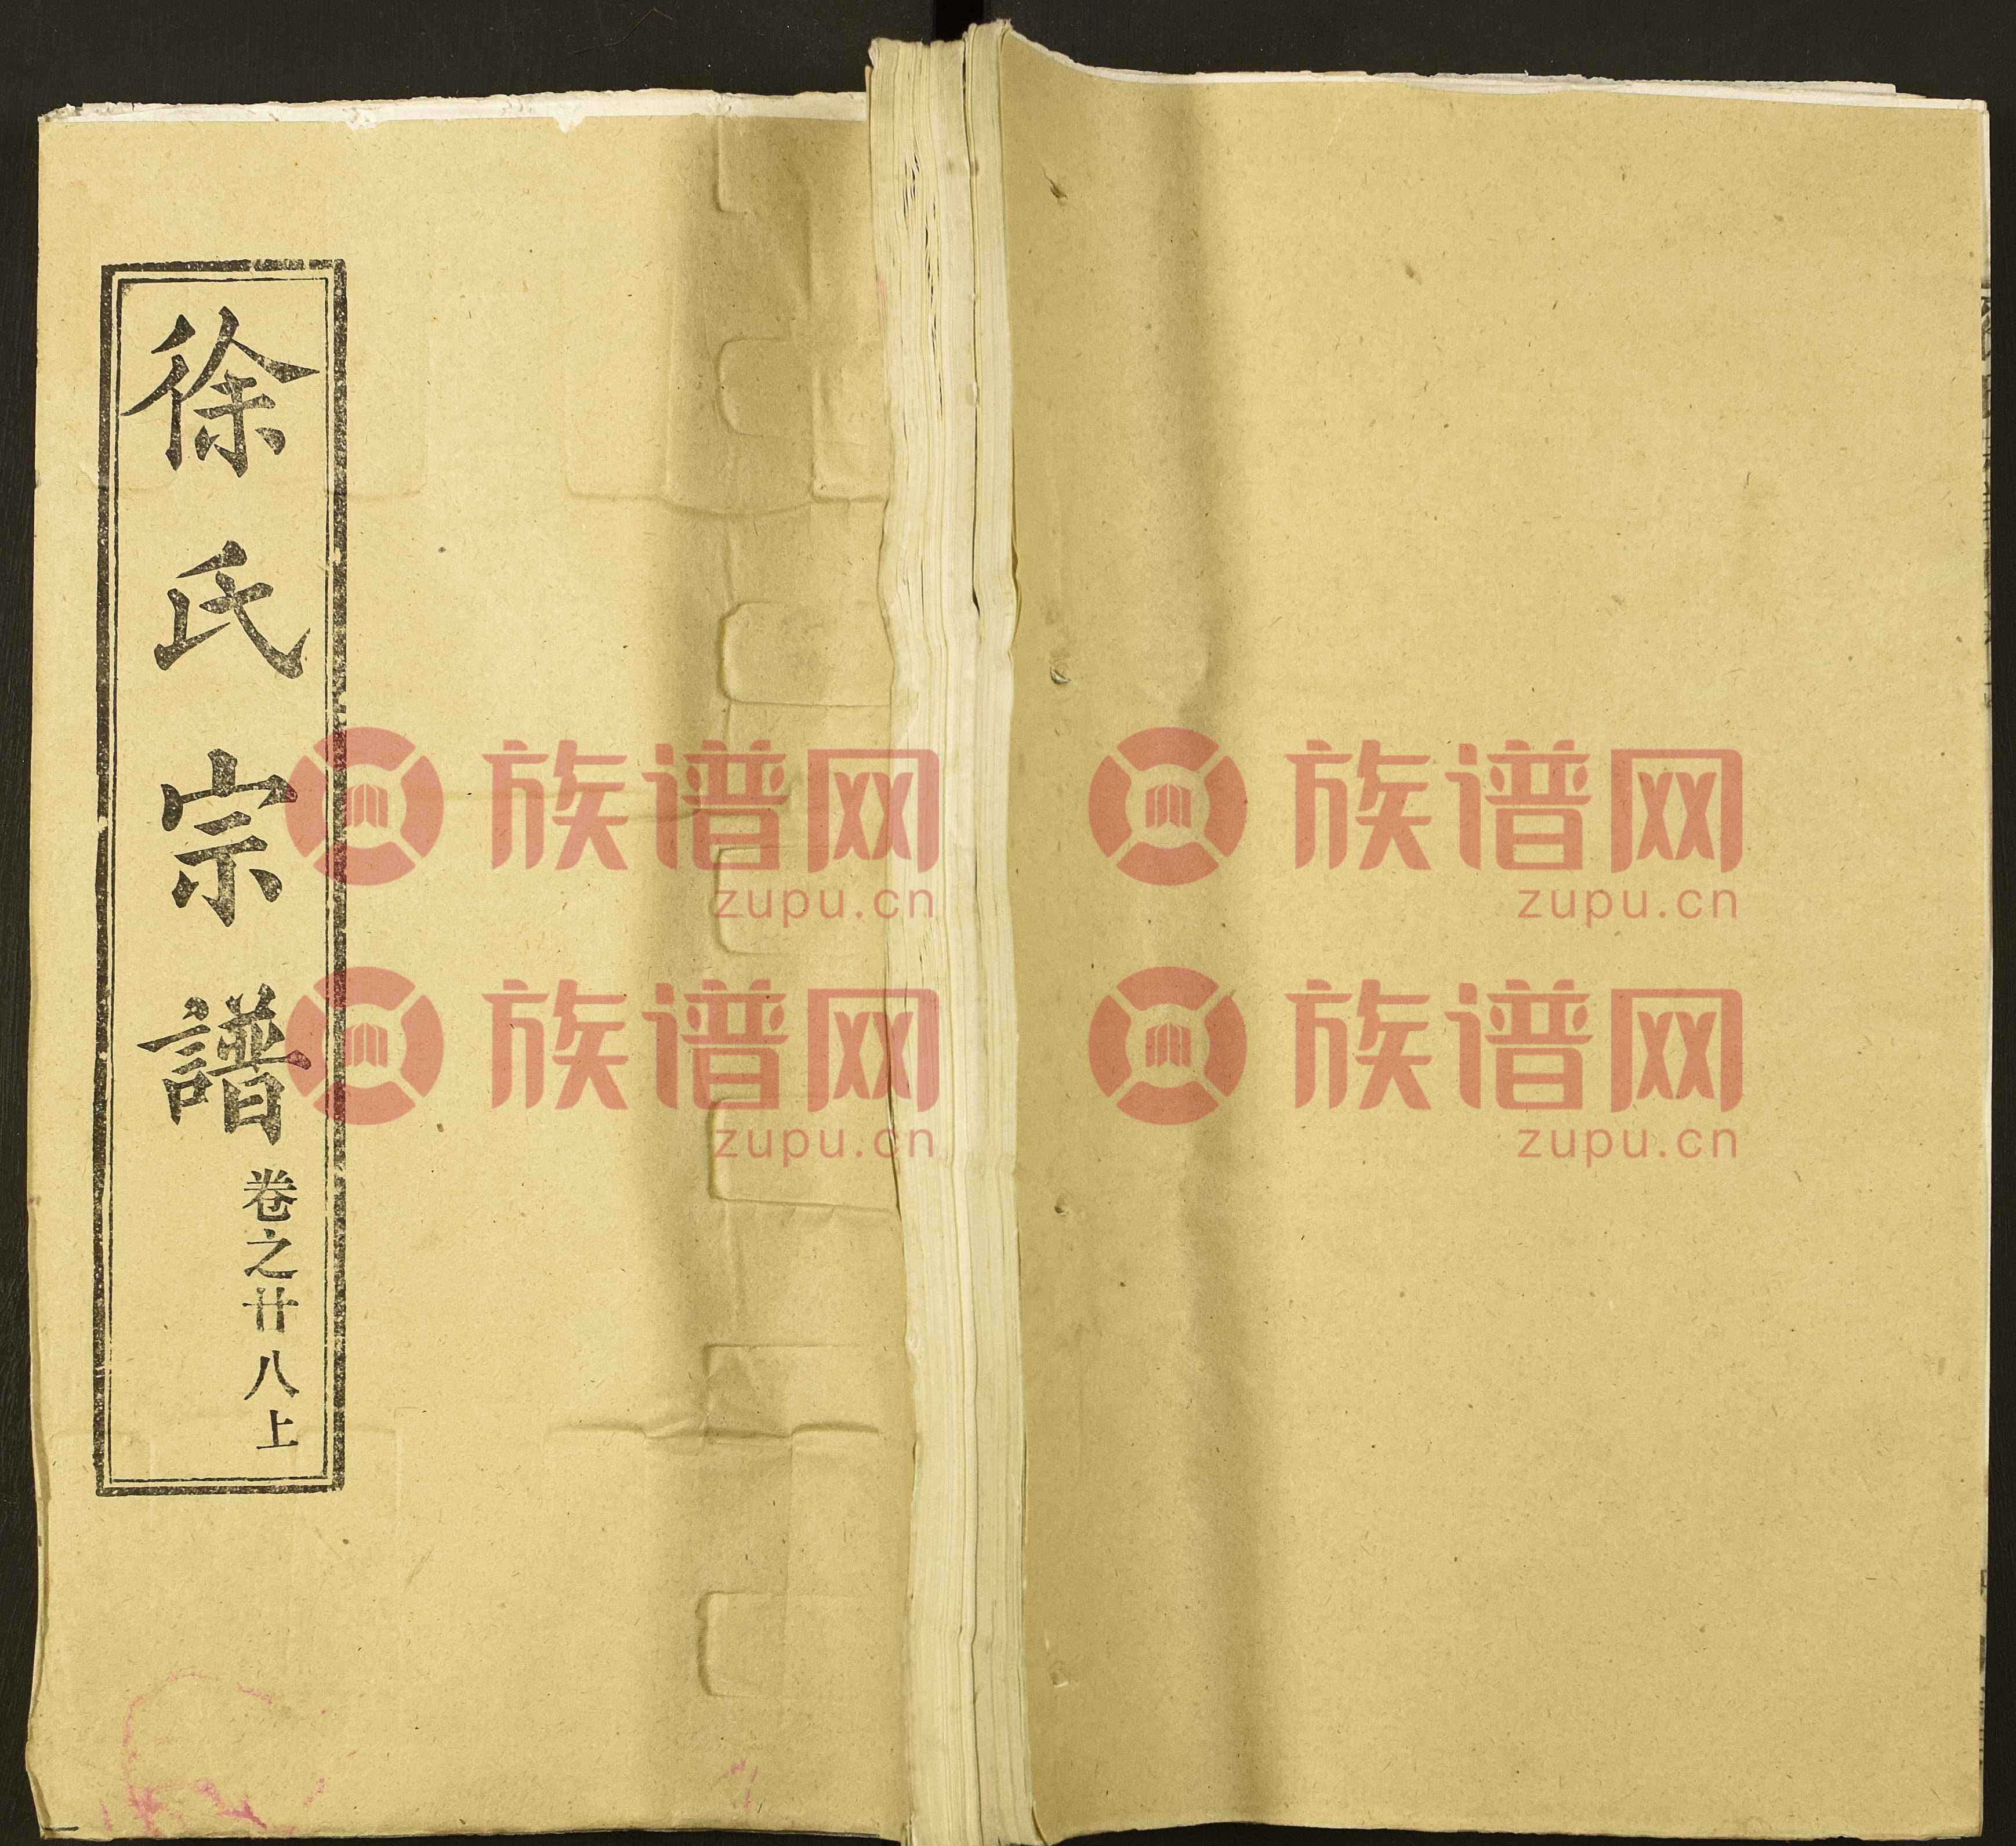 徐氏宗譜
卷之廿八上
族谱网
zupu.cn
族谱网
zupu.cn
族谱网
zupu.cn
族谱网
zupu.cn